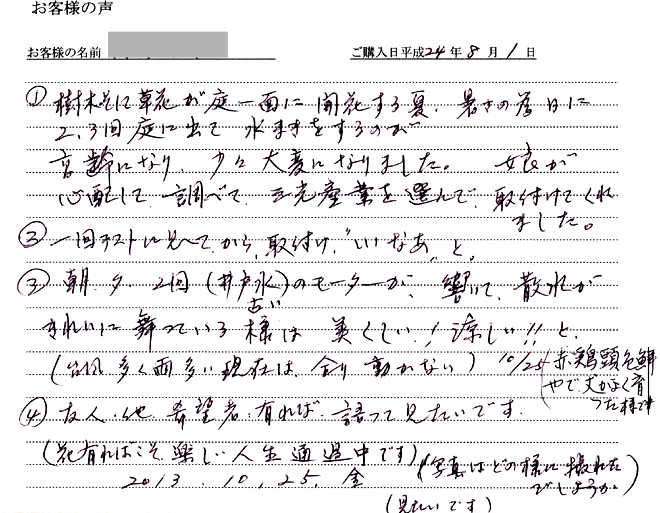 お客様の声
お客様の名前 ご購入日平成24年8月1日
① 樹木そに草花が庭一面に開花する夏、暑さの為日に
2,3回庭に出て水まきをするのが
高齢になり、少々大変になりました。娘が
心配して調べて、三光産業を選んで、取付けてくれ
ました。
② 一回テストに見へてから、取付け、"いいなあ"と。
③ 朝、夕、2回(井戸水)のモーターが、響いて、散水が
古い
きれいに舞っている様は美くしい!涼しい!!と、
(台風多く雨多い現在は、余り動かない) 10/25(赤鶏頭色鮮
やで丈がよく育
つた様です
④ 友人、他、希望者、有れば、語って見たいです。
(花有ればこそ、楽しい人生通過中です)(写真はどの様に撮れた
でしようか)
2013.10.25.金
(見たいです)